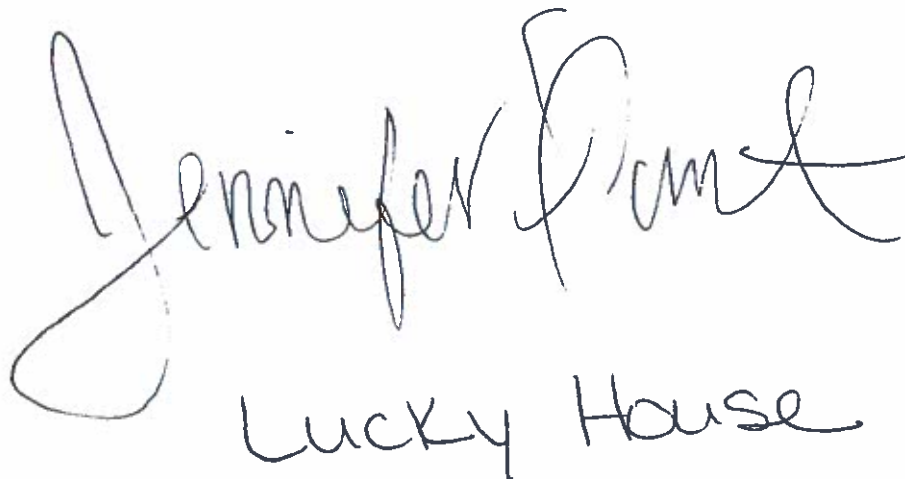 Jennifer
Lucky House